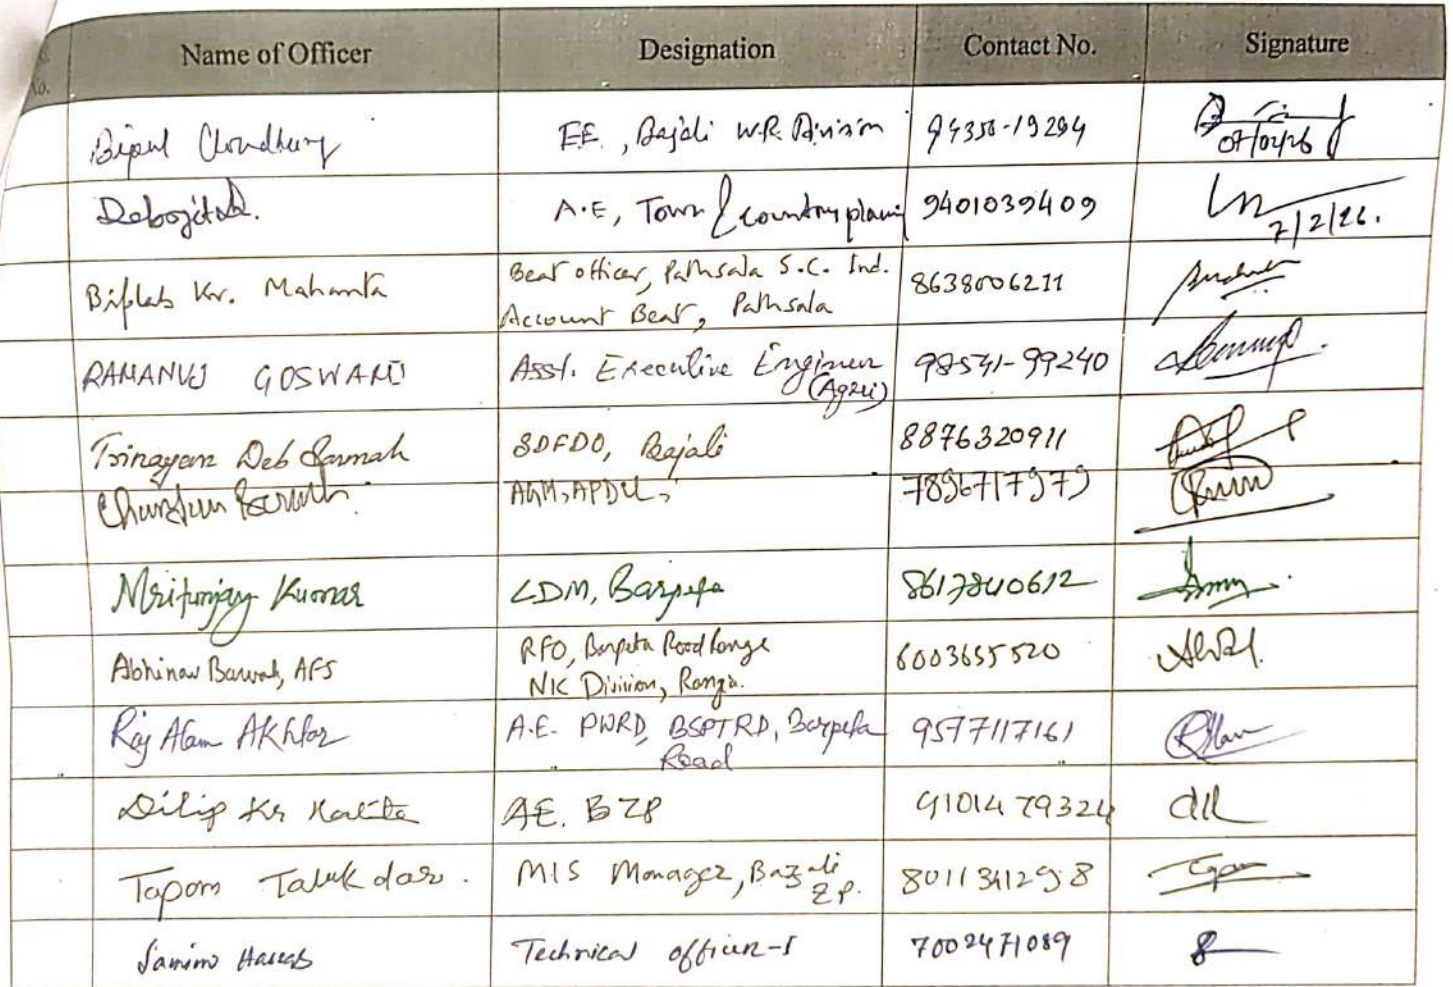 No.
Name of Officer Designation Contact No. Signature
Bipul Choudhury E.E., Bajali W.R. Division 94350-19294
07/02/26
Debojit A.E, Town & country planing 9401039409
7/2/26.
Biplab Kr. Mahanta Beat officer, Pathsala S.C. Ind. 8638006211
Account Beat, Pathsala
RAMANUJ GOSWAMI Asst. Executive Engineer 98541-99240
(Agri)
Trinayan Deb Sarmah SDFDO, Bajali 8876320911
AGM, APDCL, 7896717979
Mritunjay Kumar LDM, Barpeta 8617840612
Abhinav Baruah, AFS RFO, Barpeta Road Range 6003655520
NK Division, Rangia.
Raj Alam Akhtar A.E. PWRD, BSPTRD, Barpeta 9577117161
Road
Dilip Kr Kalita AE. BZP 9101479324
Tapom Talukdar. MIS Manager, Bajali 8011341298
Z.P.
Technical officer-I 7002471089